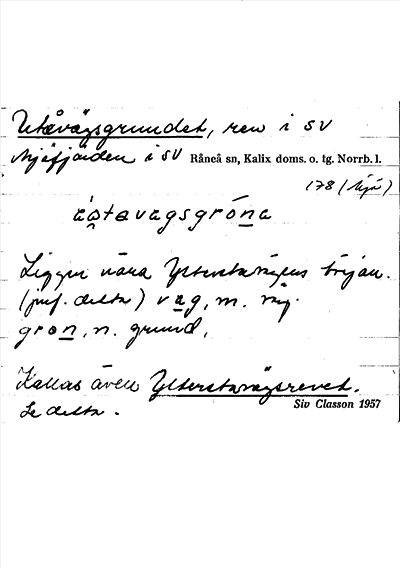 Utåvägsgrundet, rev i SV
Mjöfjärden i SV Råneå sn, Kalix doms. o. tg. Norrb. l.
178 (Mjö)
Ligger nära Ytterstavägens början.
(jmf. detta) vag, m. väg.
gron, n. grund,
Kallas även Ytterstavägsrevet.
Se detta.
Siv Classon 1957